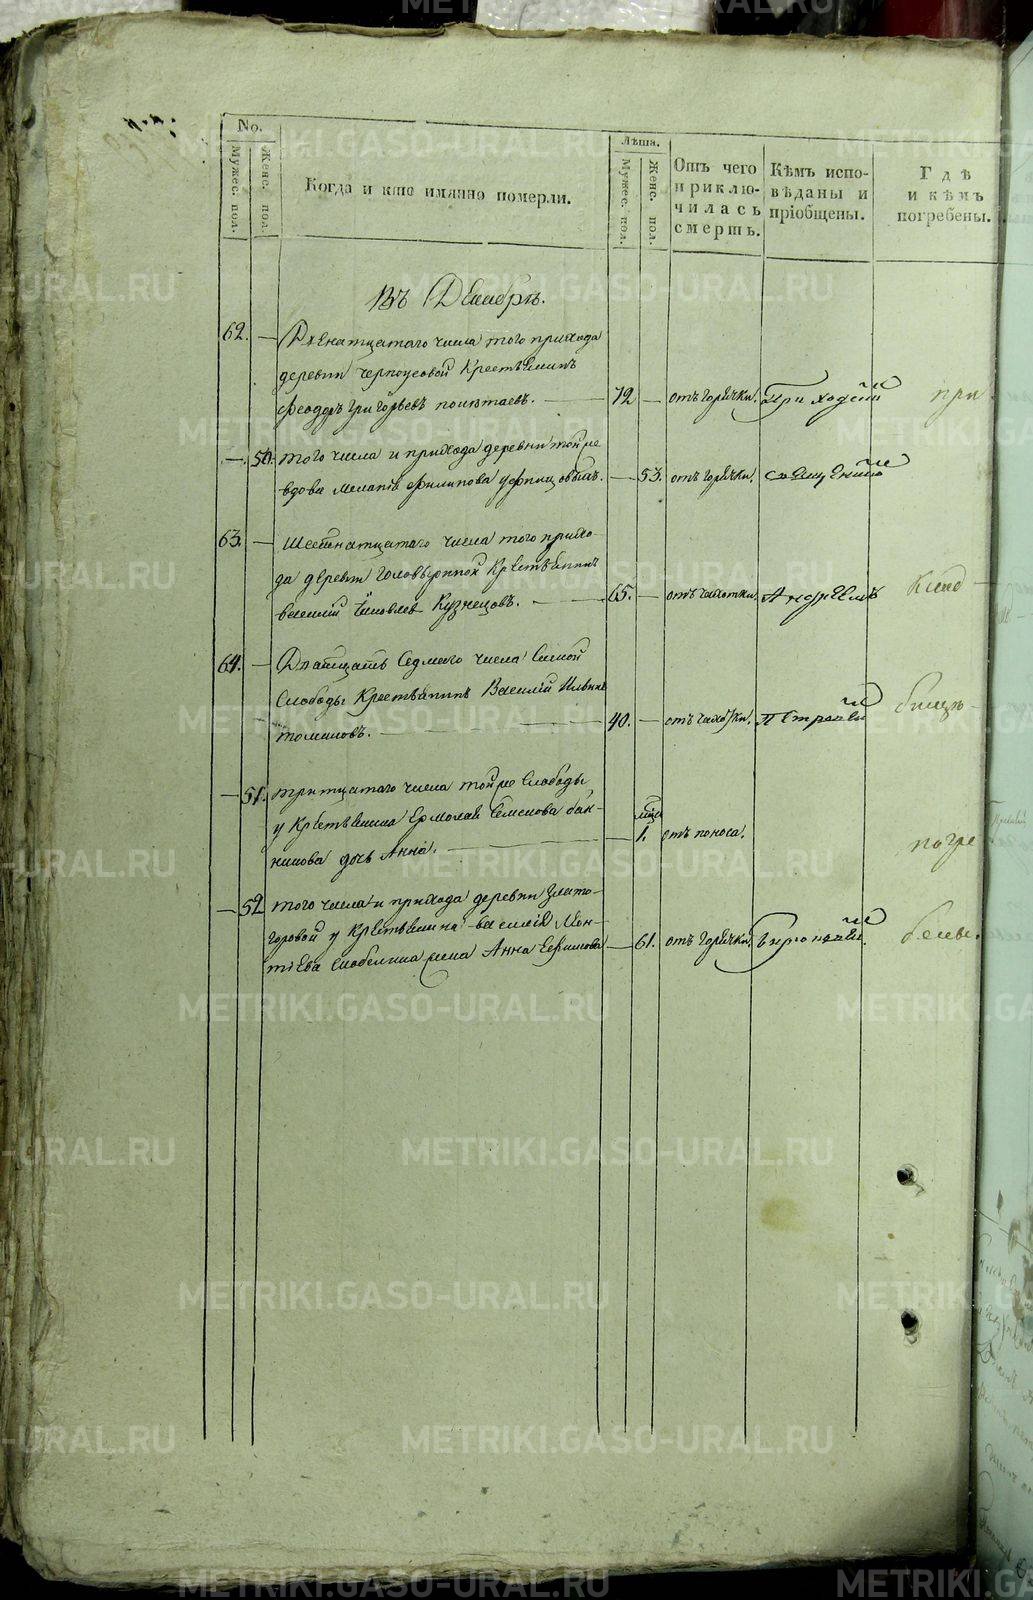 No.
Мужес. пол.
Женс. пол.
Когда и кто имянно померли.
Лѣта.
Мужес. пол.
Женс. пол.
Отъ чего приклю-
чилась
смерть.
Кѣмъ испо-
вѣданы и
пріобщены.
Гдѣ
и кѣмъ
погребены.
Въ Декабрѣ.
62. — Двенатцатого числа того прихода
деревни Черноусовой Крестьянинъ
Феодоръ Григорьевъ — 72 — отъ горячки. Приходскій при
— 50. того числа и прихода деревни тойже
вдова Филипова — 53. отъ горячки. священникъ
63. — Шестнатцатого числа того прихо-
да деревни Крестьянинъ
Василій Яковлевъ Кузнецовъ. — 65. — отъ чахотки. Андреемъ клад
64. — Дватцать Седмаго числа Самой
Слободы Крестьянинъ Василій Ильинъ
Томиловъ. — 40. — отъ чахотки. Петромъ
— 51. тритцатого числа тойже Слободы
у Крестьянина Ермолая Семенова
дочь Анна. — 1. отъ поноса. погре
— 52 того числа и прихода деревни Злато-
горовой у Крестьянина Василія Леон-
тіева жена Анна — 61. отъ горячки.
METRIKI.GASO-URAL.RU